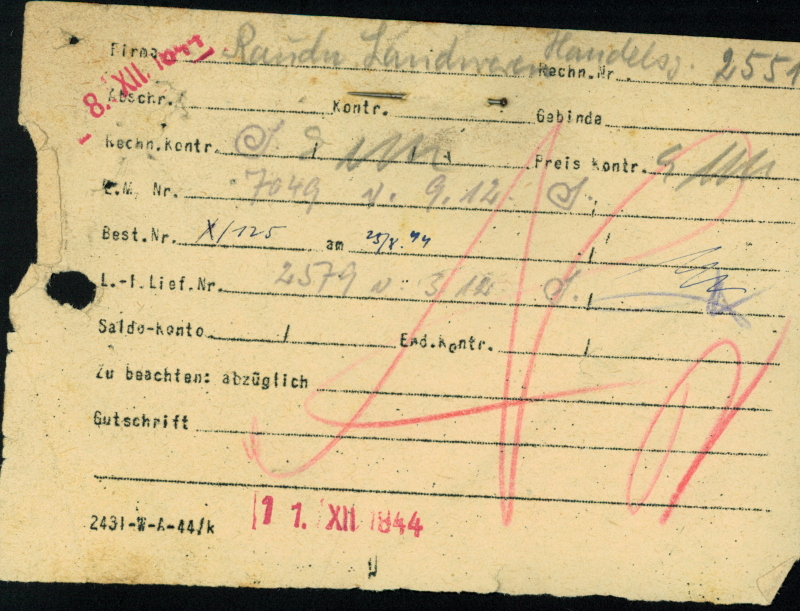 8. XII. 1944
Firma Rauda Landwaren Handelsg. Rechn.Nr. 2551
Abschr. Kontr. Gebinde
Rechn.Kontr. / / Preis Kontr.
E.M. Nr. 7049 v. 9.12. /
Best.Nr. X/125 am 25/X.44 /
L.-f.Lief.Nr. 2579 v. 3 12 /
Saldo-Konto / End.Kontr. /
Zu beachten: abzüglich
Gutschrift
2431-W-A-44/k 11. XII 1944